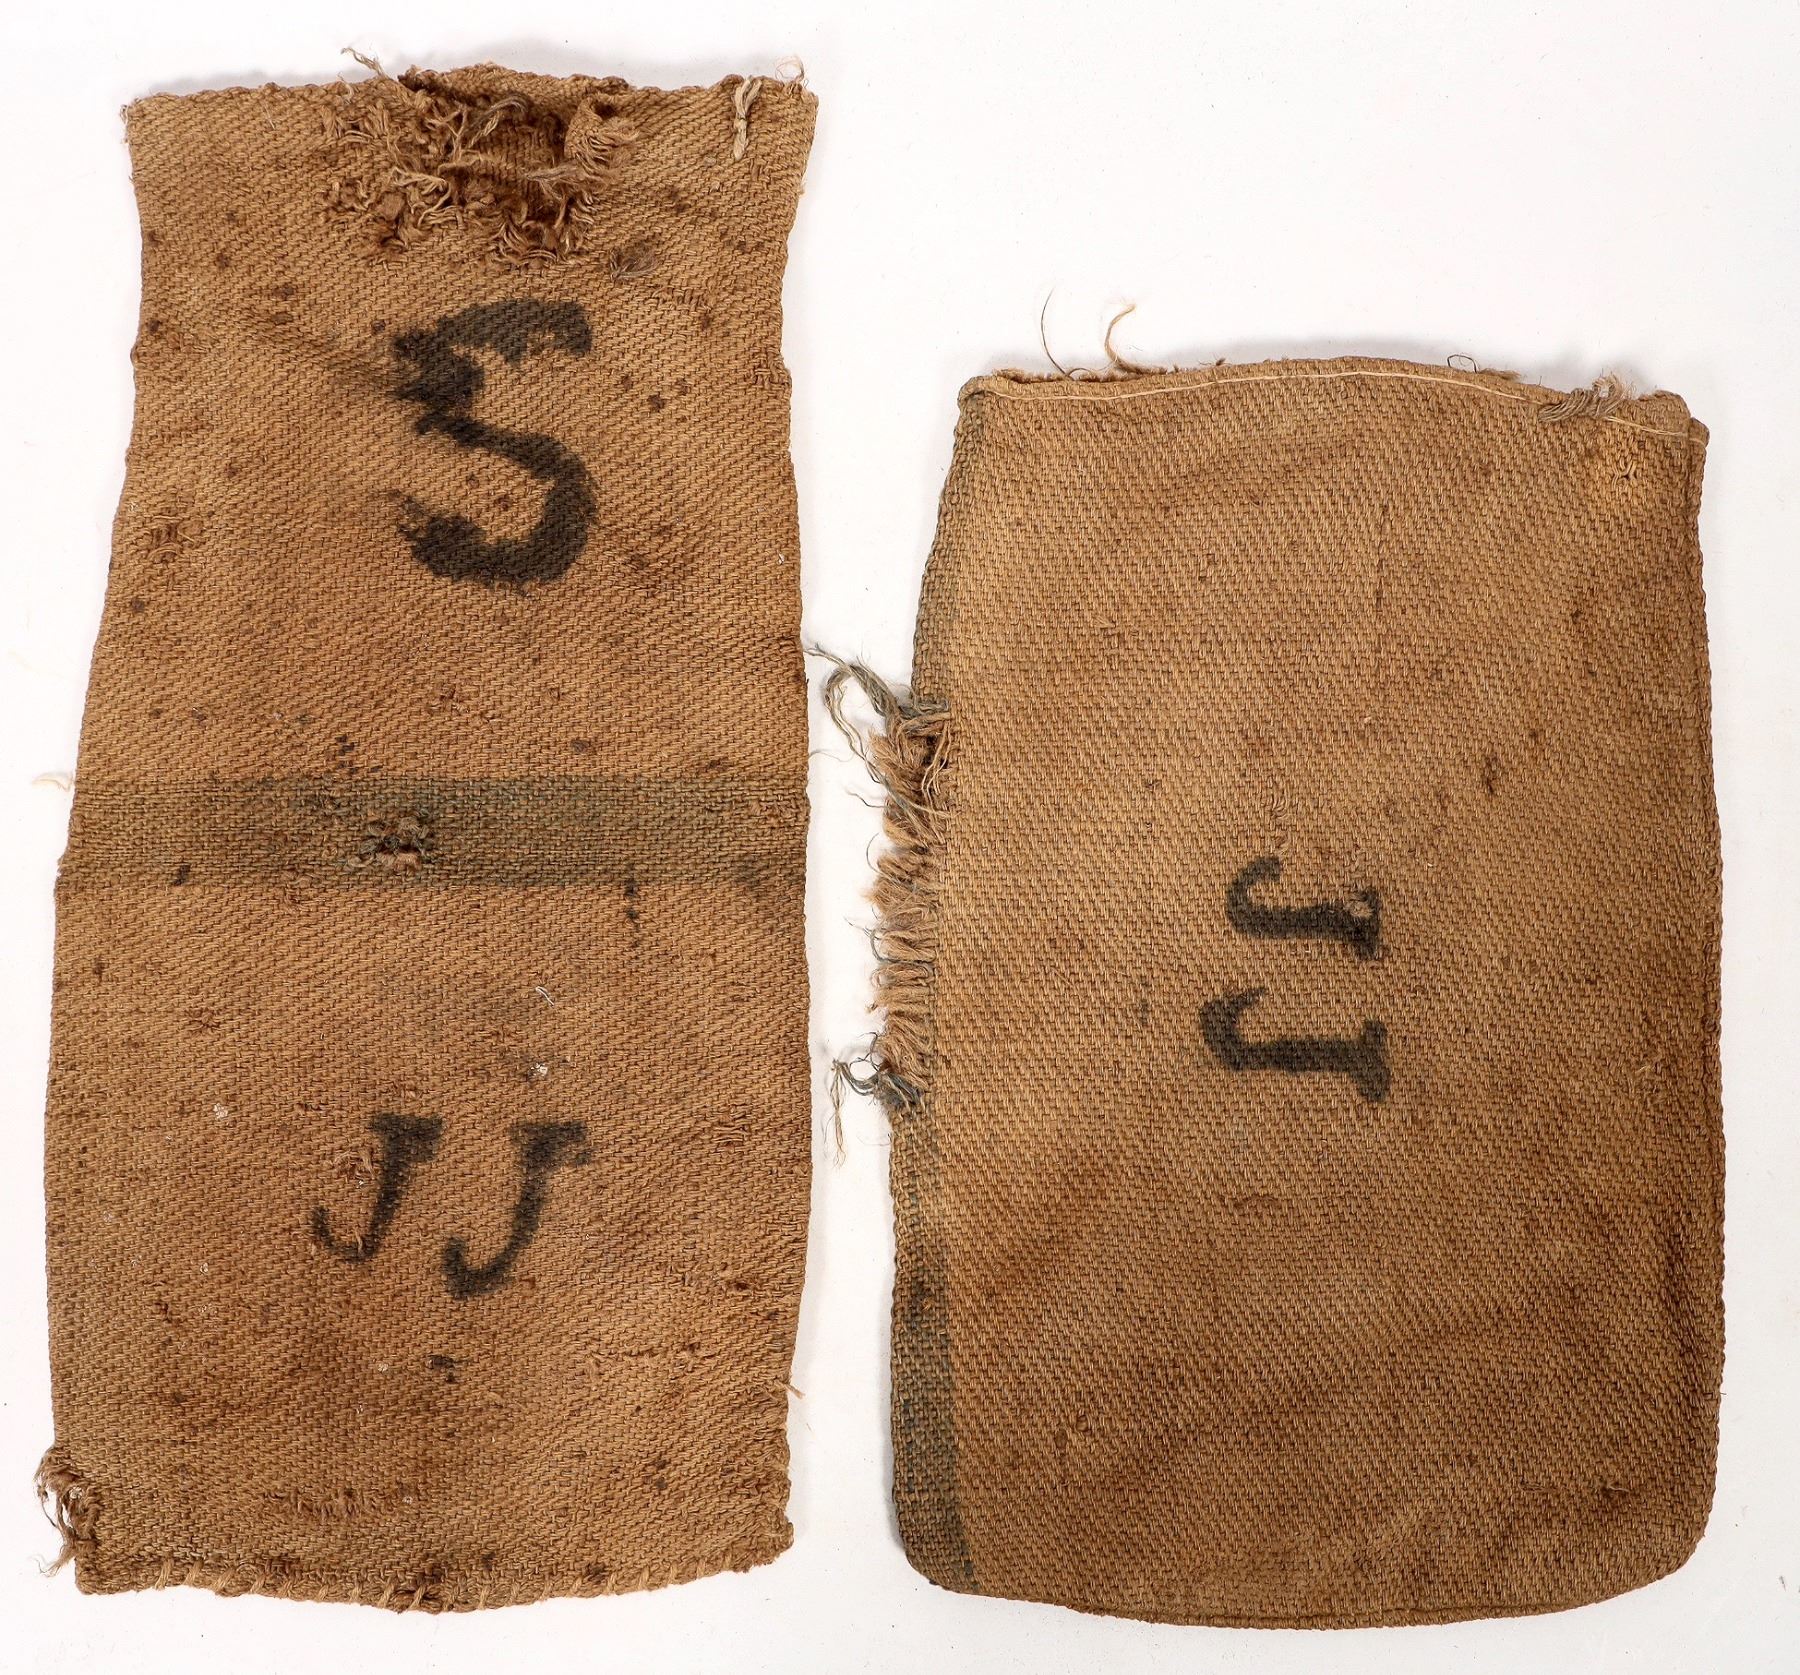 S
JJ
JJ